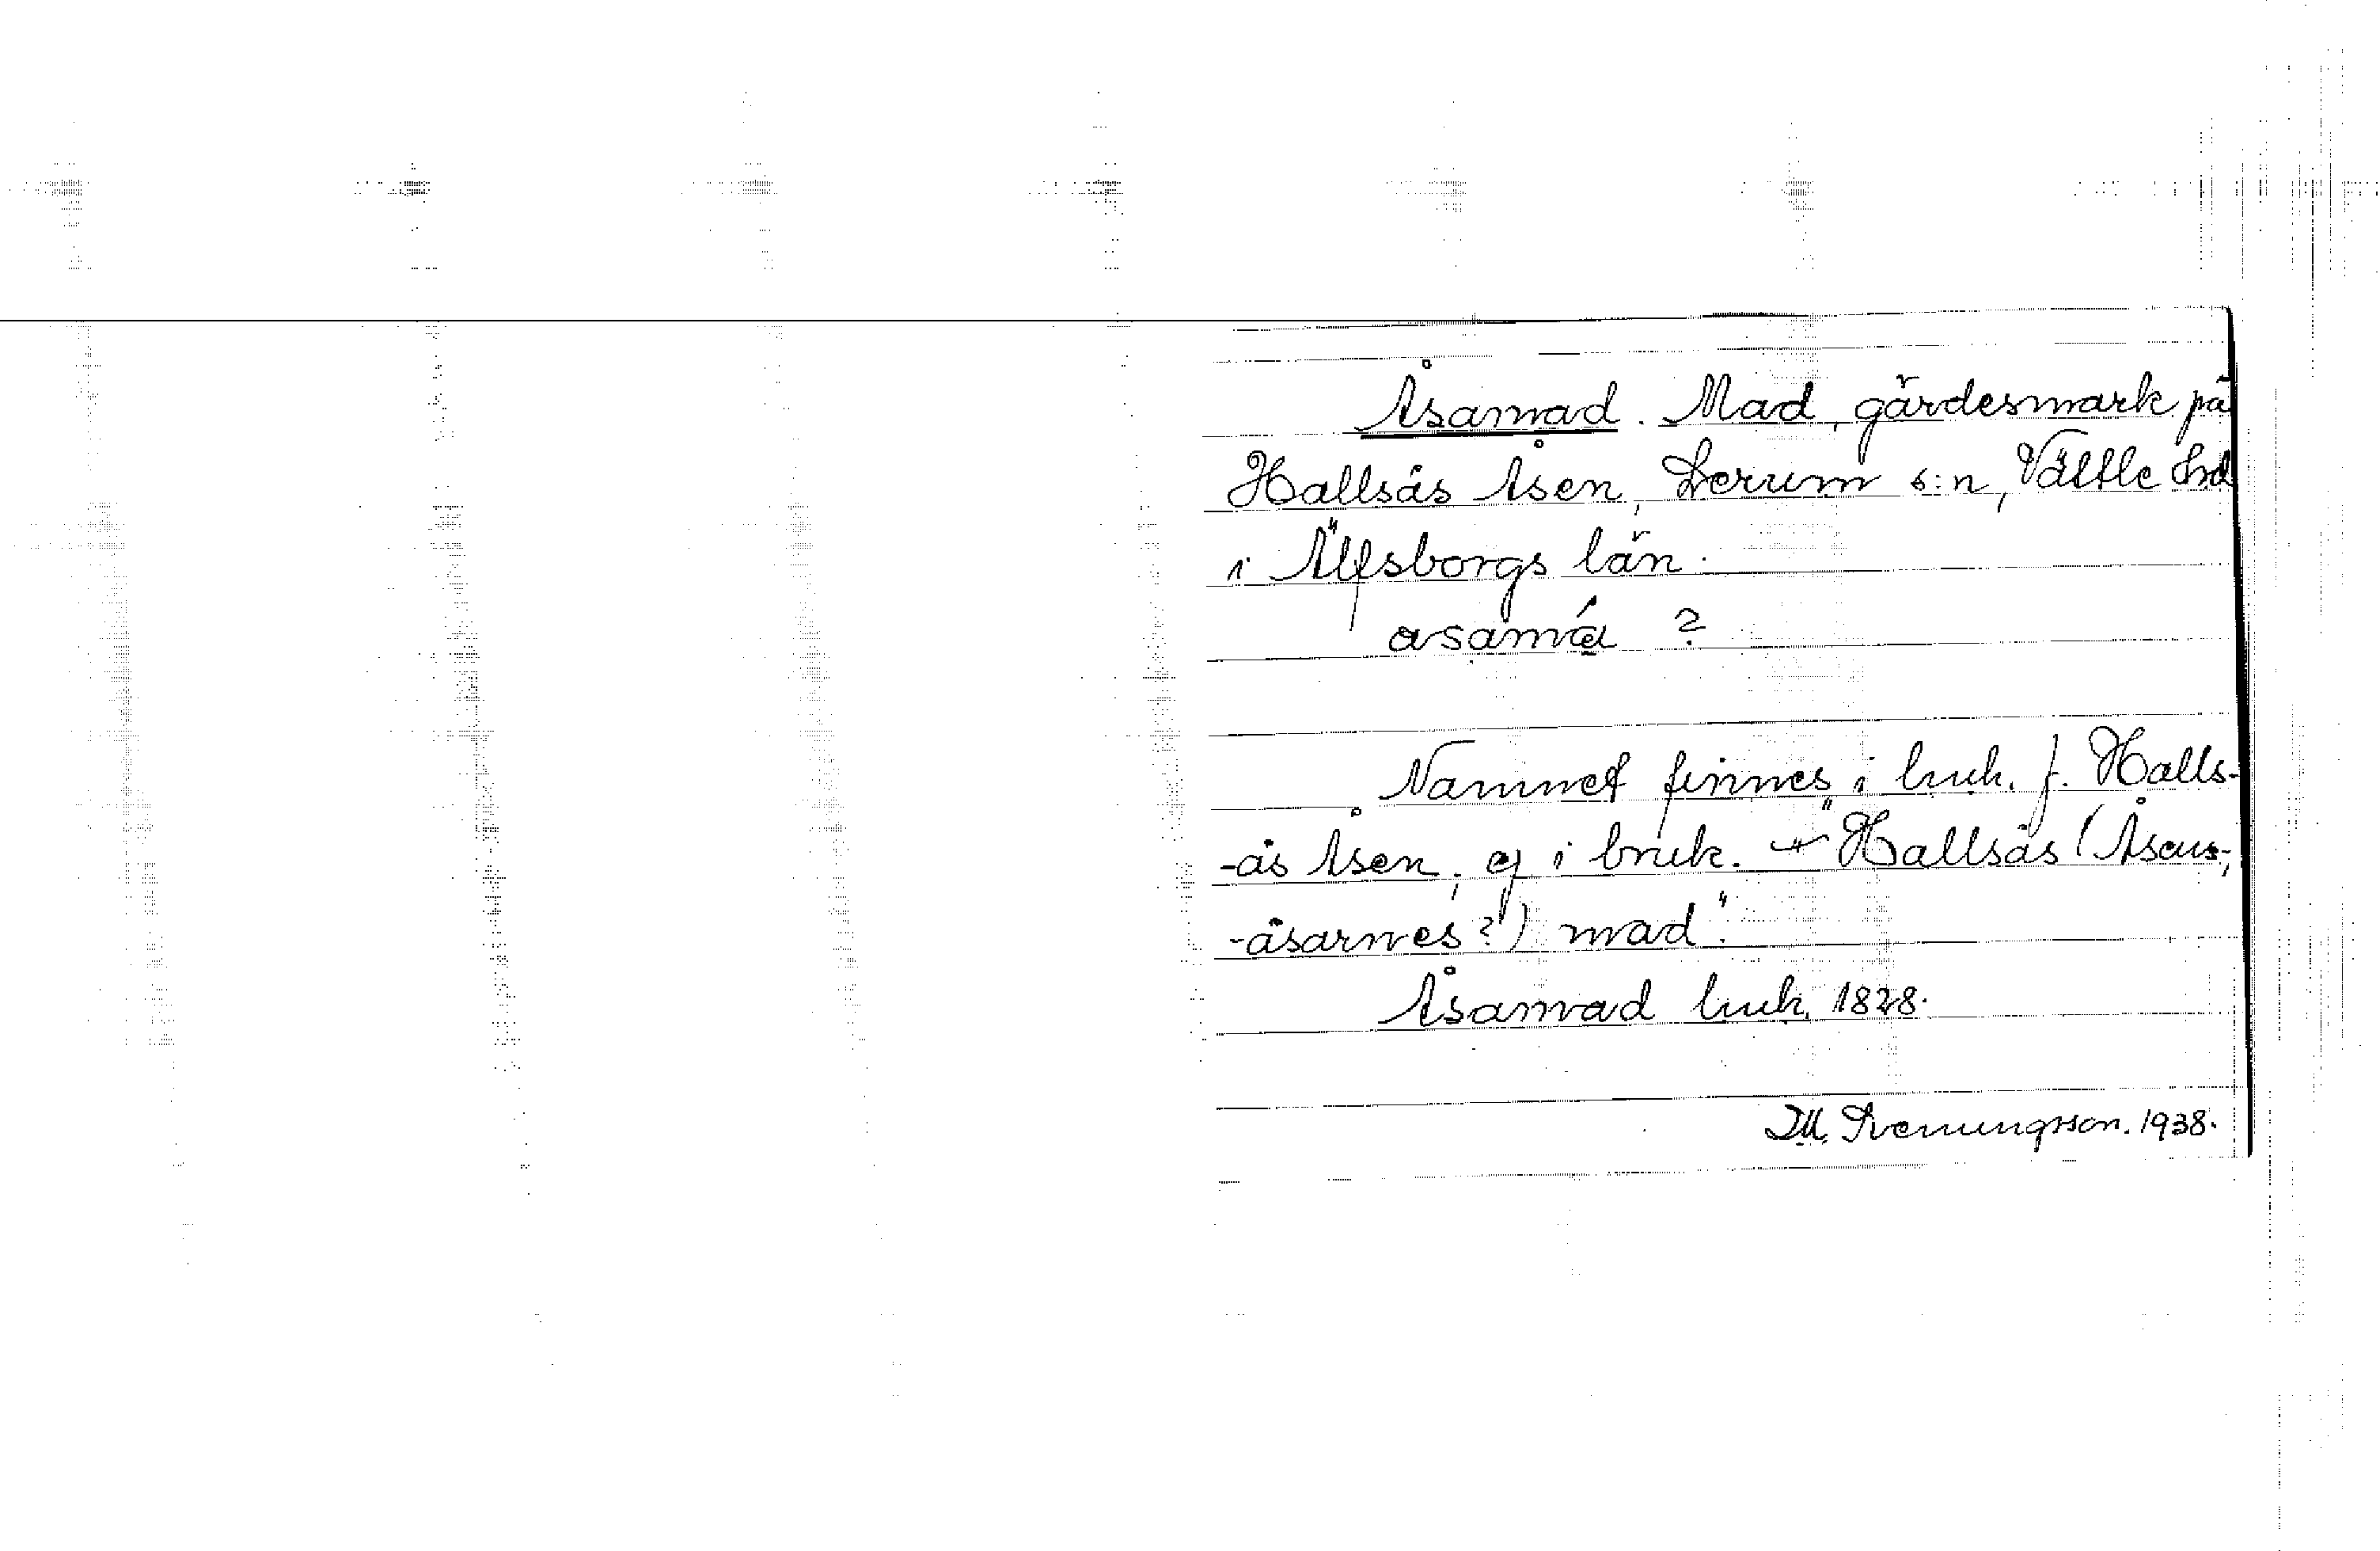 Åsamad. Mad, gärdesmark på
Hallsås Åsen, Lerum s:n, Vättle hd
i Älfsborgs län.
asamá ?
Namnet finnes i luk. f. Halls-
-ås Åsen; ej i bruk. "Hallsås (Åsens-,
-åsarnes?) mad".
Åsamad luk. 1828.
Svenungsson. 1938.